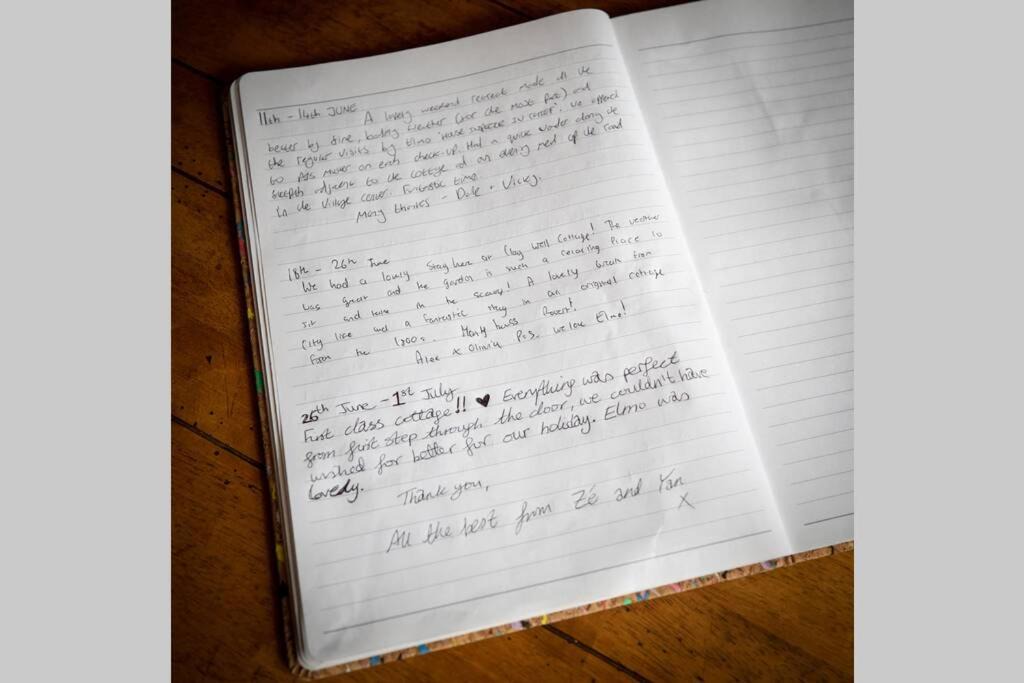 11th - 14th JUNE A lovely weekend retreat made all the
better by fine, weather (for the most part) and
the regular visits by Elmo 'House Inspector
to Pass Muster on each check-up. Had a quick wander along the
adjacent to the cottage and an evening meal up the road
in the village Fantastic time.
Many thanks - Dale + Vicky.
18th - 26th June
We had a lovely stay here at Clay Well Cottage! The weather
was great and the garden is such a relaxing place to
sit and take in the scenery! A lovely break from
city life and a fantastic stay in an original cottage
from the 1700s. Many thanks
Alex x Olivia P.S. we love Elmo!
26th June - 1st July
First class cottage!! ♥ Everything was perfect
from first step through the door, we couldn't have
wished for better for our holiday. Elmo was
lovely.
Thank you,
All the best from Zé and Yan
X